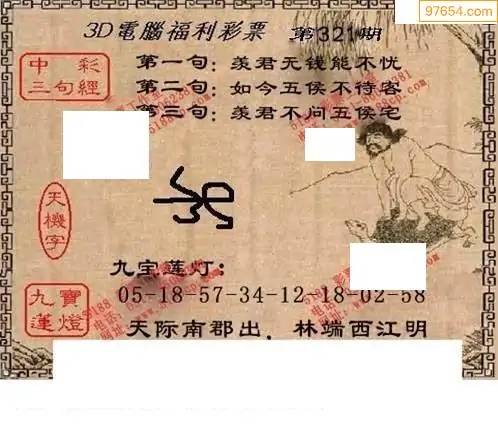 97654.com
3D電腦福利彩票 第321期
中彩
三句經
第一句：羡君无钱能不忧
第二句：如今五侯不待客
第三句：羡君不问五侯宅
天機字
九宝莲灯：
九寶
蓮燈
05-18-57-34-12-18-02-58
天际南郡出，林端西江明